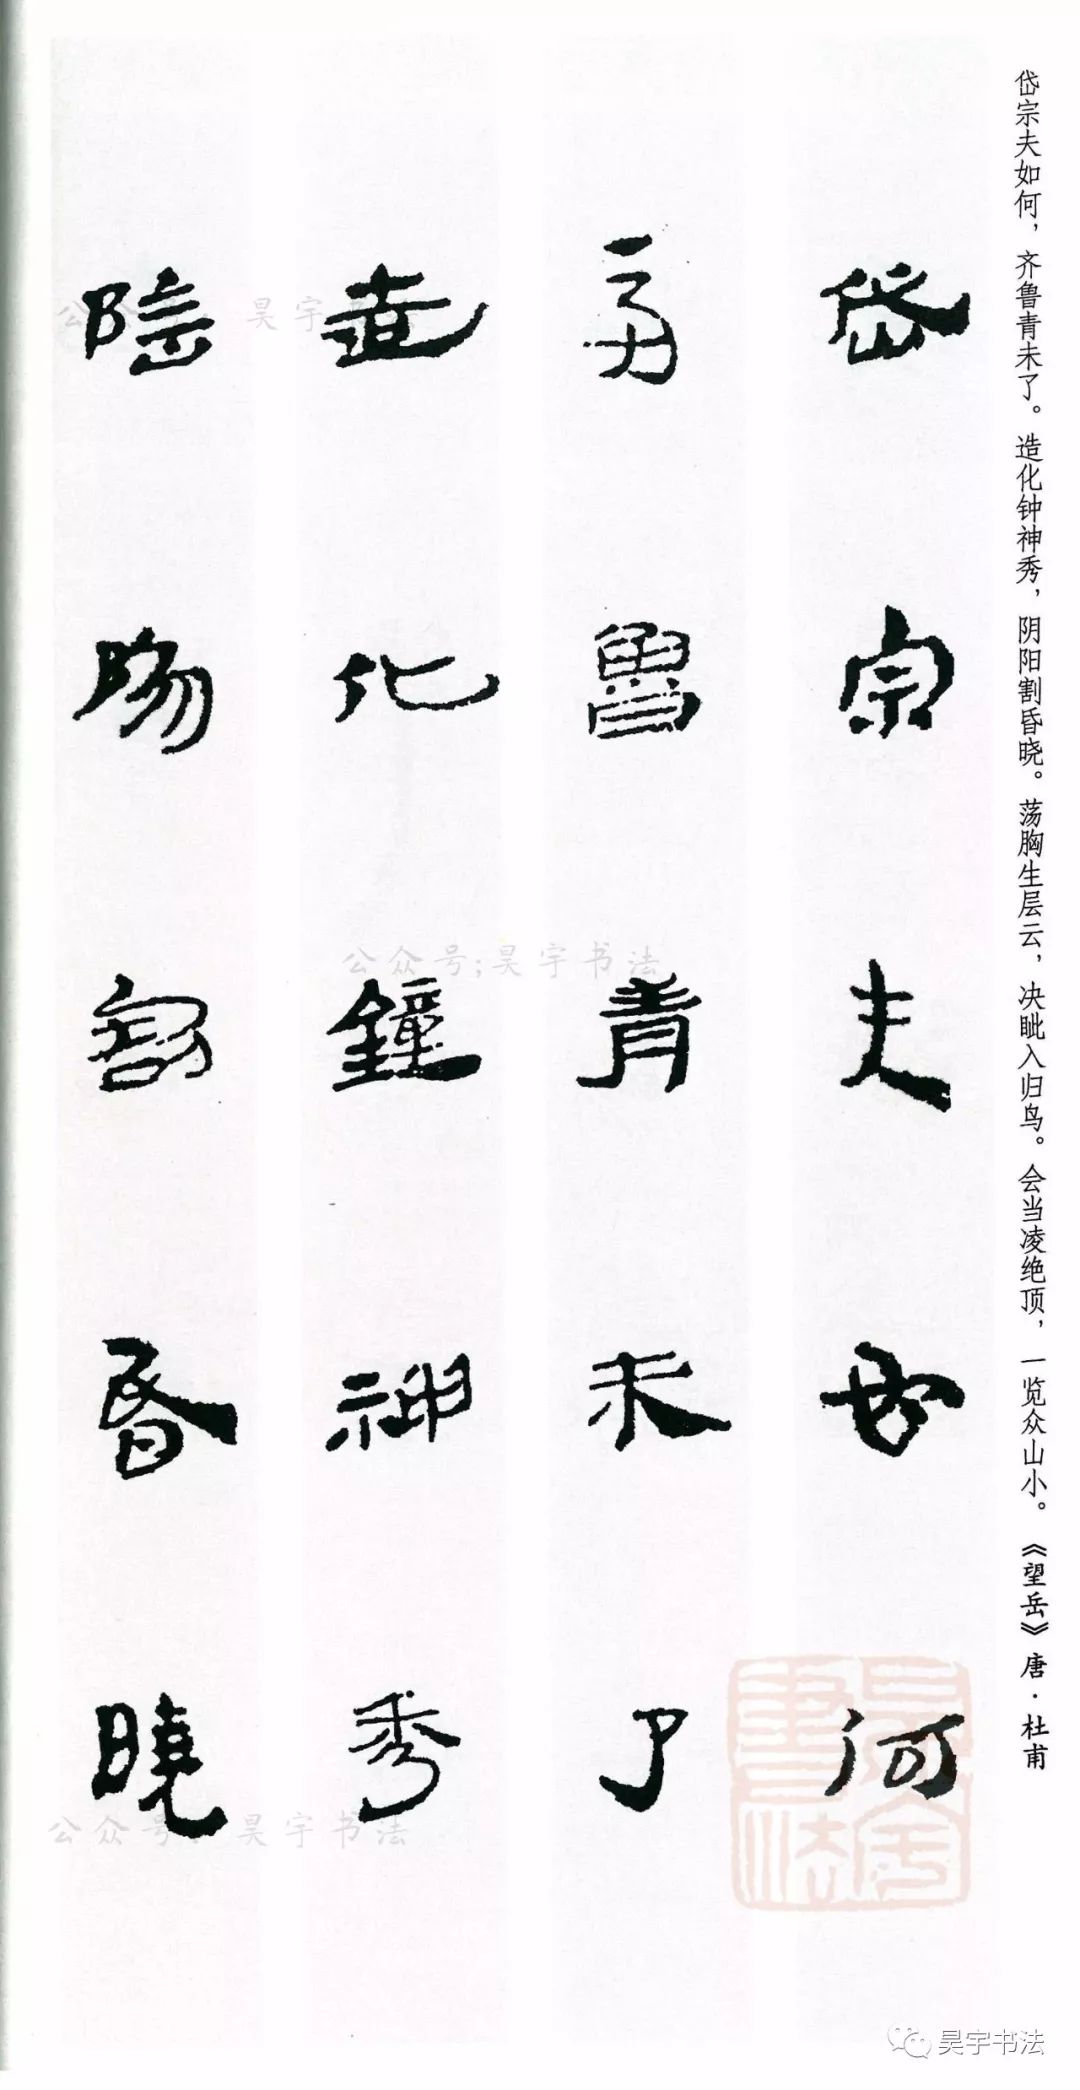 岱宗夫如何，齐鲁青未了。造化钟神秀，阴阳割昏晓。荡胸生层云，决眦入归鸟。会当凌绝顶，一览众山小。《望岳》唐·杜甫
岱宗夫如河
齐魯青未了
造化鐘神秀
陰陽割昏曉
公众号 昊宇书
公众号;昊宇书法
公众号 昊宇书法
昊宇书法
昊宇书法